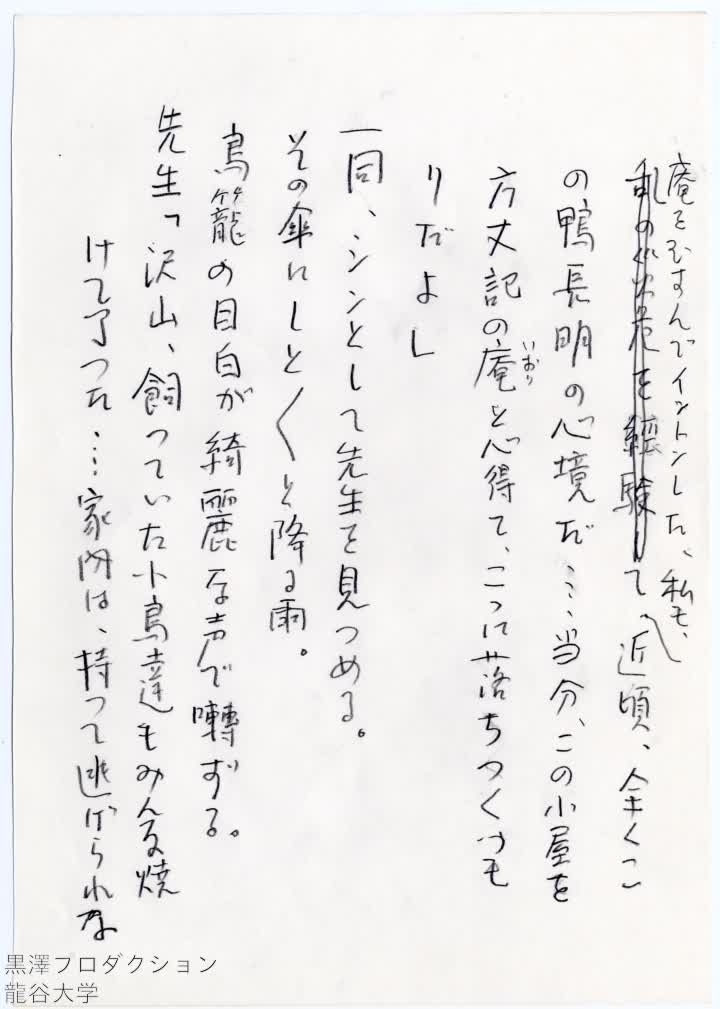 庵をむすんでイントンした、私も、
て、近頃、全くこ
の鴨長明の心境だ…当分、この小屋を
方丈記の庵と心得て、こゝに落ちつくつも
いおり
りだよ」
一同、シンとして先生を見つめる。
その傘にしと〱と降る雨。
鳥籠の目白が綺麗な声で囀ずる。
先生「沢山、飼つていた小鳥達もみんな焼
けて了つた…家内は、持つて逃げられな
黒澤プロダクション
龍谷大学